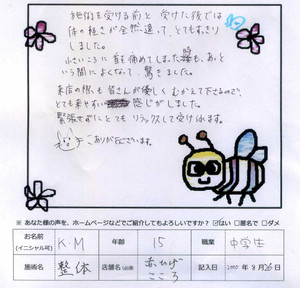 施術を受ける前と受けた後では
体の軽さが全然違って、とてもすっきり
しました。
小さいころに首を痛めてしまった時も、あっと
いう間によくなって、驚きました。
来店の際も皆さんが優しくむかえて下さるので、
とても来やすい感じがしました。
緊張せずにとてもリラックスして受けられます。
ありがとうございます。
※ あなた様の声を、ホームページなどでご紹介してもよろしいですか? ☑はい □匿名で □ダメ
お名前 (イニシャル可) K・M 年齢 15 職業 中学生
施術名 整体 店舗名 あかひげ こころ 記入日 8月26日